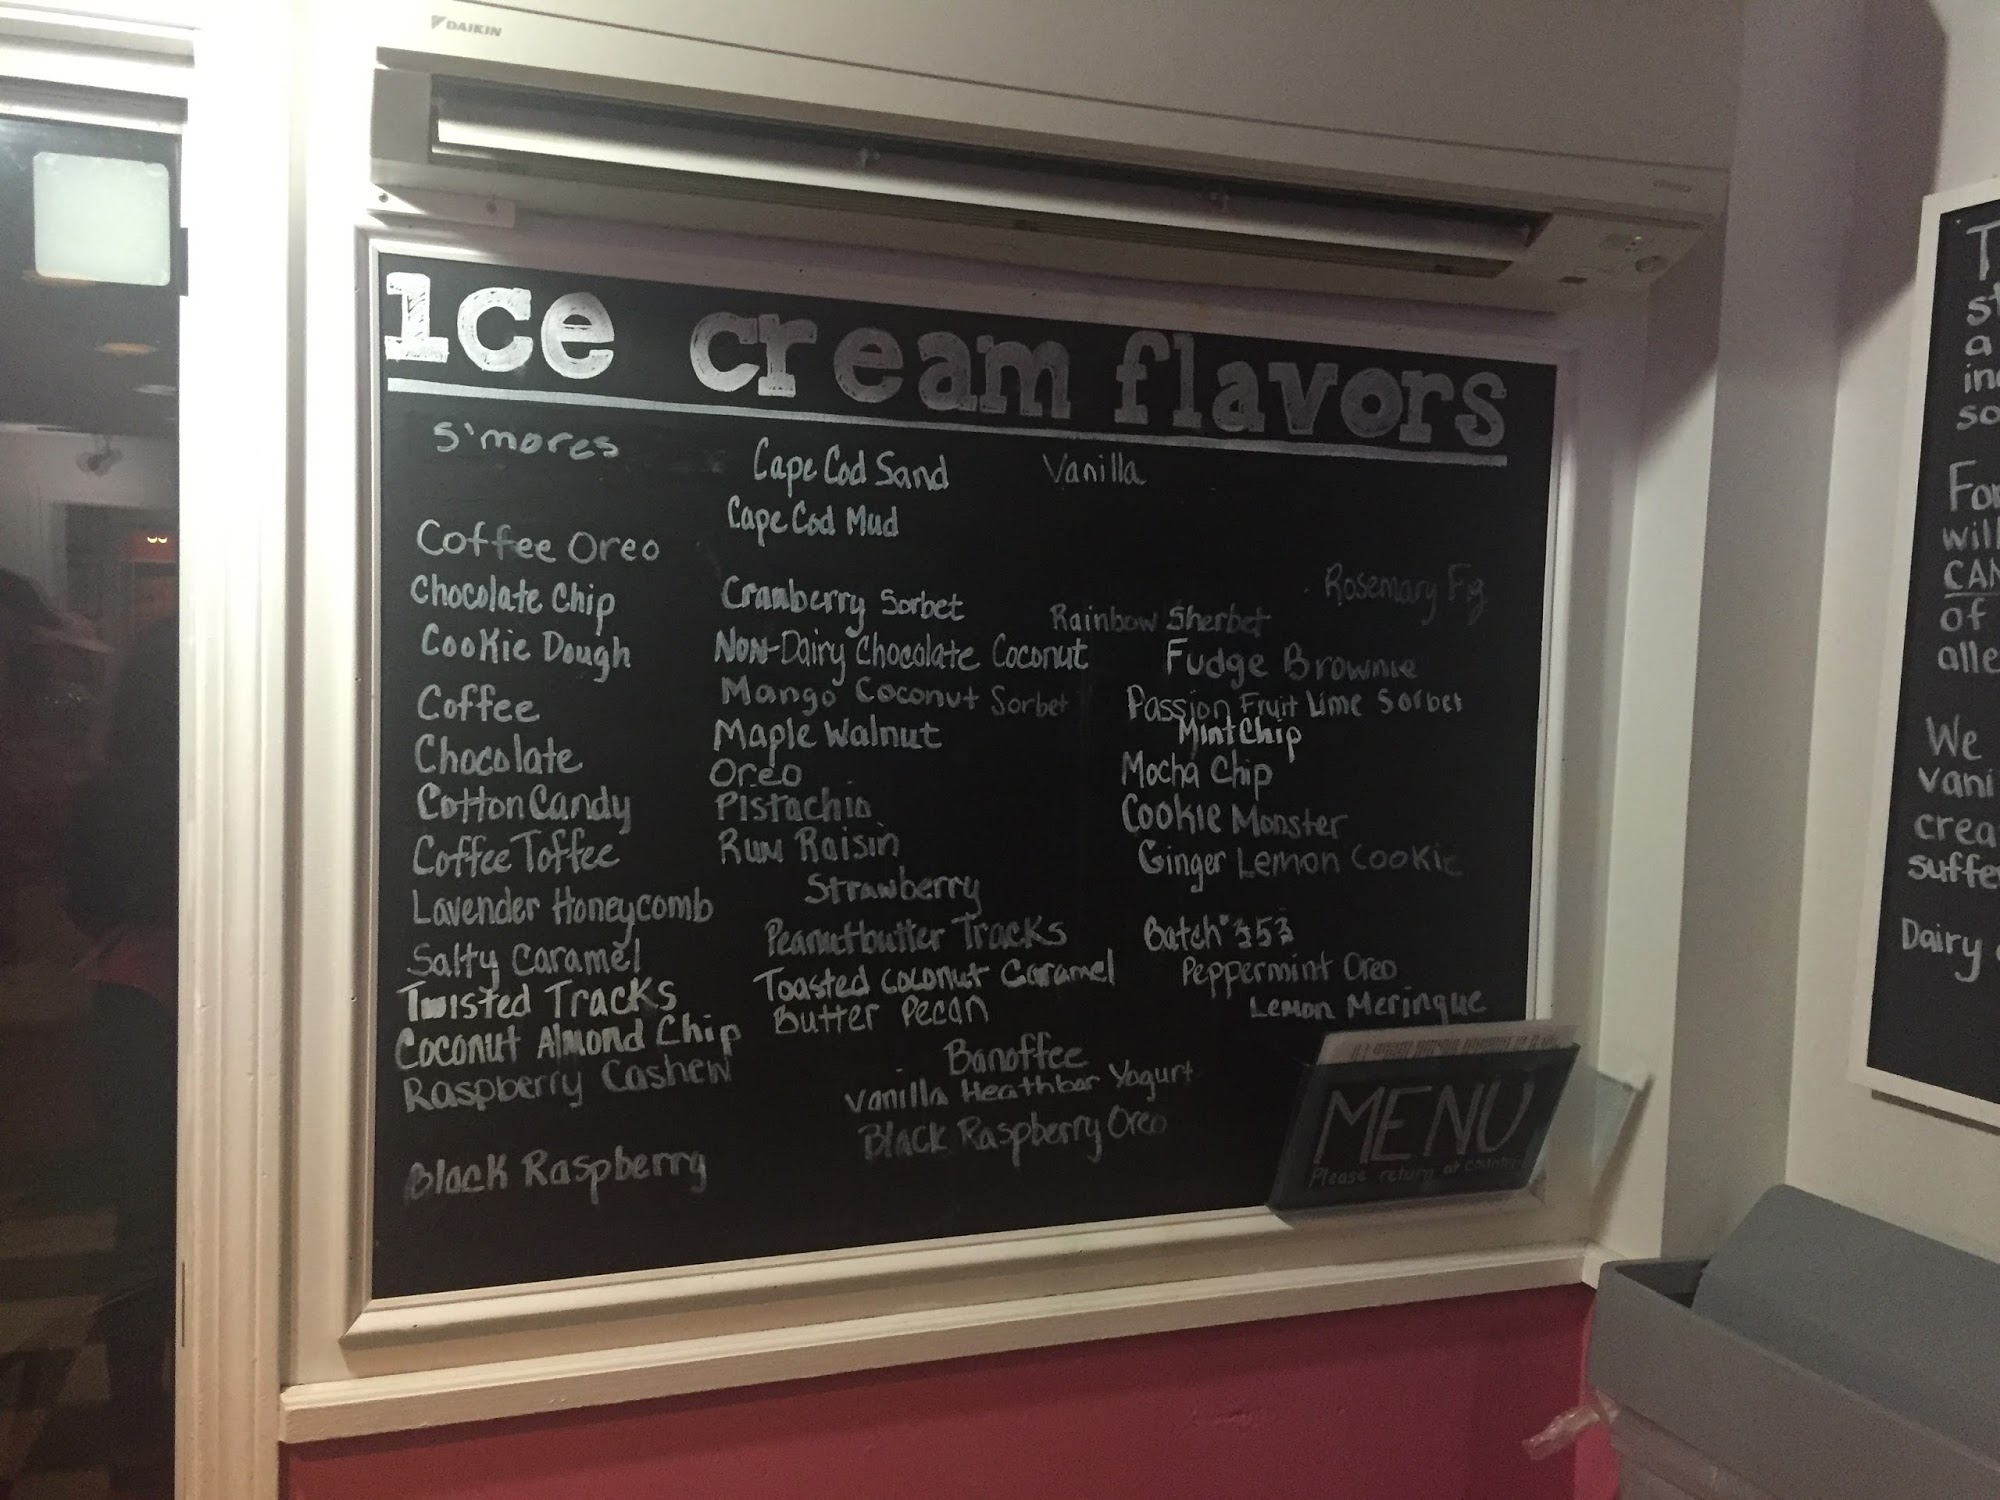 DAIKIN
ice cream flavors
S'mores
Coffee Oreo
Chocolate Chip
Cookie Dough
Coffee
Chocolate
Cotton Candy
Coffee Toffee
Lavender Honeycomb
Salty Caramel
Twisted Tracks
Coconut Almond Chip
Raspberry Cashew
Black Raspberry
Cape Cod Sand
Cape Cod Mud
Cranberry Sorbet
Non-Dairy Chocolate Coconut
Mango Coconut Sorbet
Maple Walnut
Oreo
Pistachio
Rum Raisin
Strawberry
Peanutbutter Tracks
Toasted Coconut Caramel
Butter Pecan
Banoffee
Vanilla Heathbar Yogurt
Black Raspberry Oreo
Vanilla
Rosemary Fig
Rainbow Sherbet
Fudge Brownie
Passion Fruit Lime Sorbet
Mint Chip
Mocha Chip
Cookie Monster
Ginger Lemon Cookie
Batch
Peppermint Oreo
Lemon Meringue
MENU
Please return at counter
a
so
of
We
Dairy